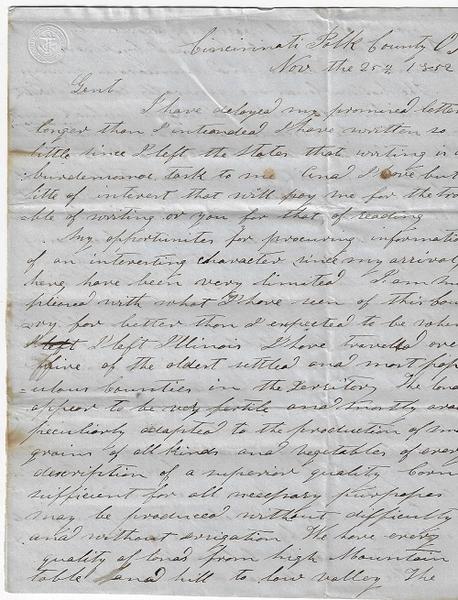 Cincinnati Polk County O
Nov the 25th 1852
Gent
I have delayed my promised letter
longer than I intended I have written so
little since I left the States that writing is a
burdensome task to me and I have but
litle of interest that will pay me for the tro
able of writing or you for that of reading
My opportunites for procuring informatio
of an interesting character since my arrival
here have been very limited I am thus
pleased with what I have seen of this cou
ry far better than I expected to be when
I left Illinois I have travelled over
five of the oldest settled and most pop
ulous Counties in the Territory The land
appear to be very fertile and mostly are
peculiarly adapted to the production of sma
grains of all kinds and vegetables of every
description of a superior quality Corn
sufficient for all necessary purposes
may be produced without difficulty
and without irrigation We have every
quality of land from high Mountain
table land hill to low valley The